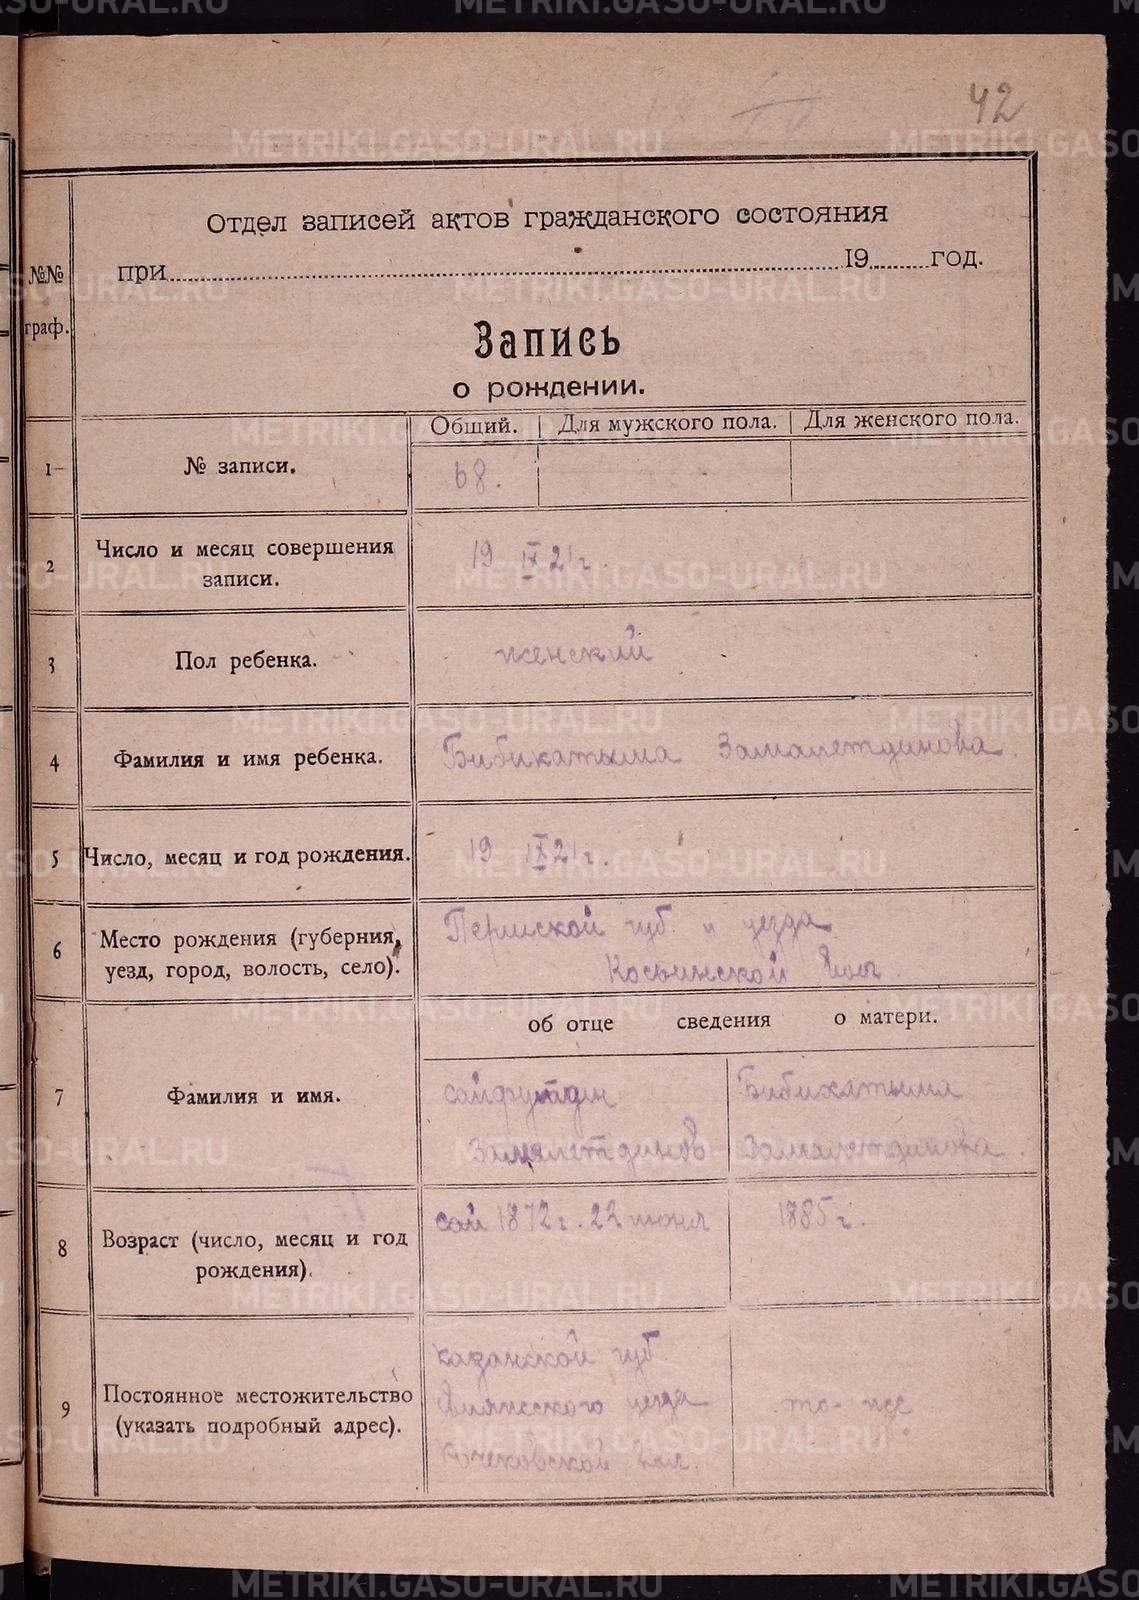 42
Отдел записей актов гражданского состояния
при 19 год.
№№ граф.
Запись
о рождении.
Общий. Для мужского пола. Для женского пола.
1 № записи. 68.
2 Число и месяц совершения записи. 19 IX 21 г.
3 Пол ребенка. женский
4 Фамилия и имя ребенка. Бибикатыма Замалетдинова.
5 Число, месяц и год рождения. 19 IX 21 г.
6 Место рождения (губерния, уезд, город, волость, село). Пермской губ. и уезда
Косьинской вол.
об отце сведения о матери.
7 Фамилия и имя. сайфутдин Бибихатыма
Замалетдинов Замалетдинова.
8 Возраст (число, месяц и год рождения). 1872 г. 22 июня 1885 г.
9 Постоянное местожительство (указать подробный адрес). казанской губ
уезда то-же
вол.
METRIKI.GASO-URAL.RU